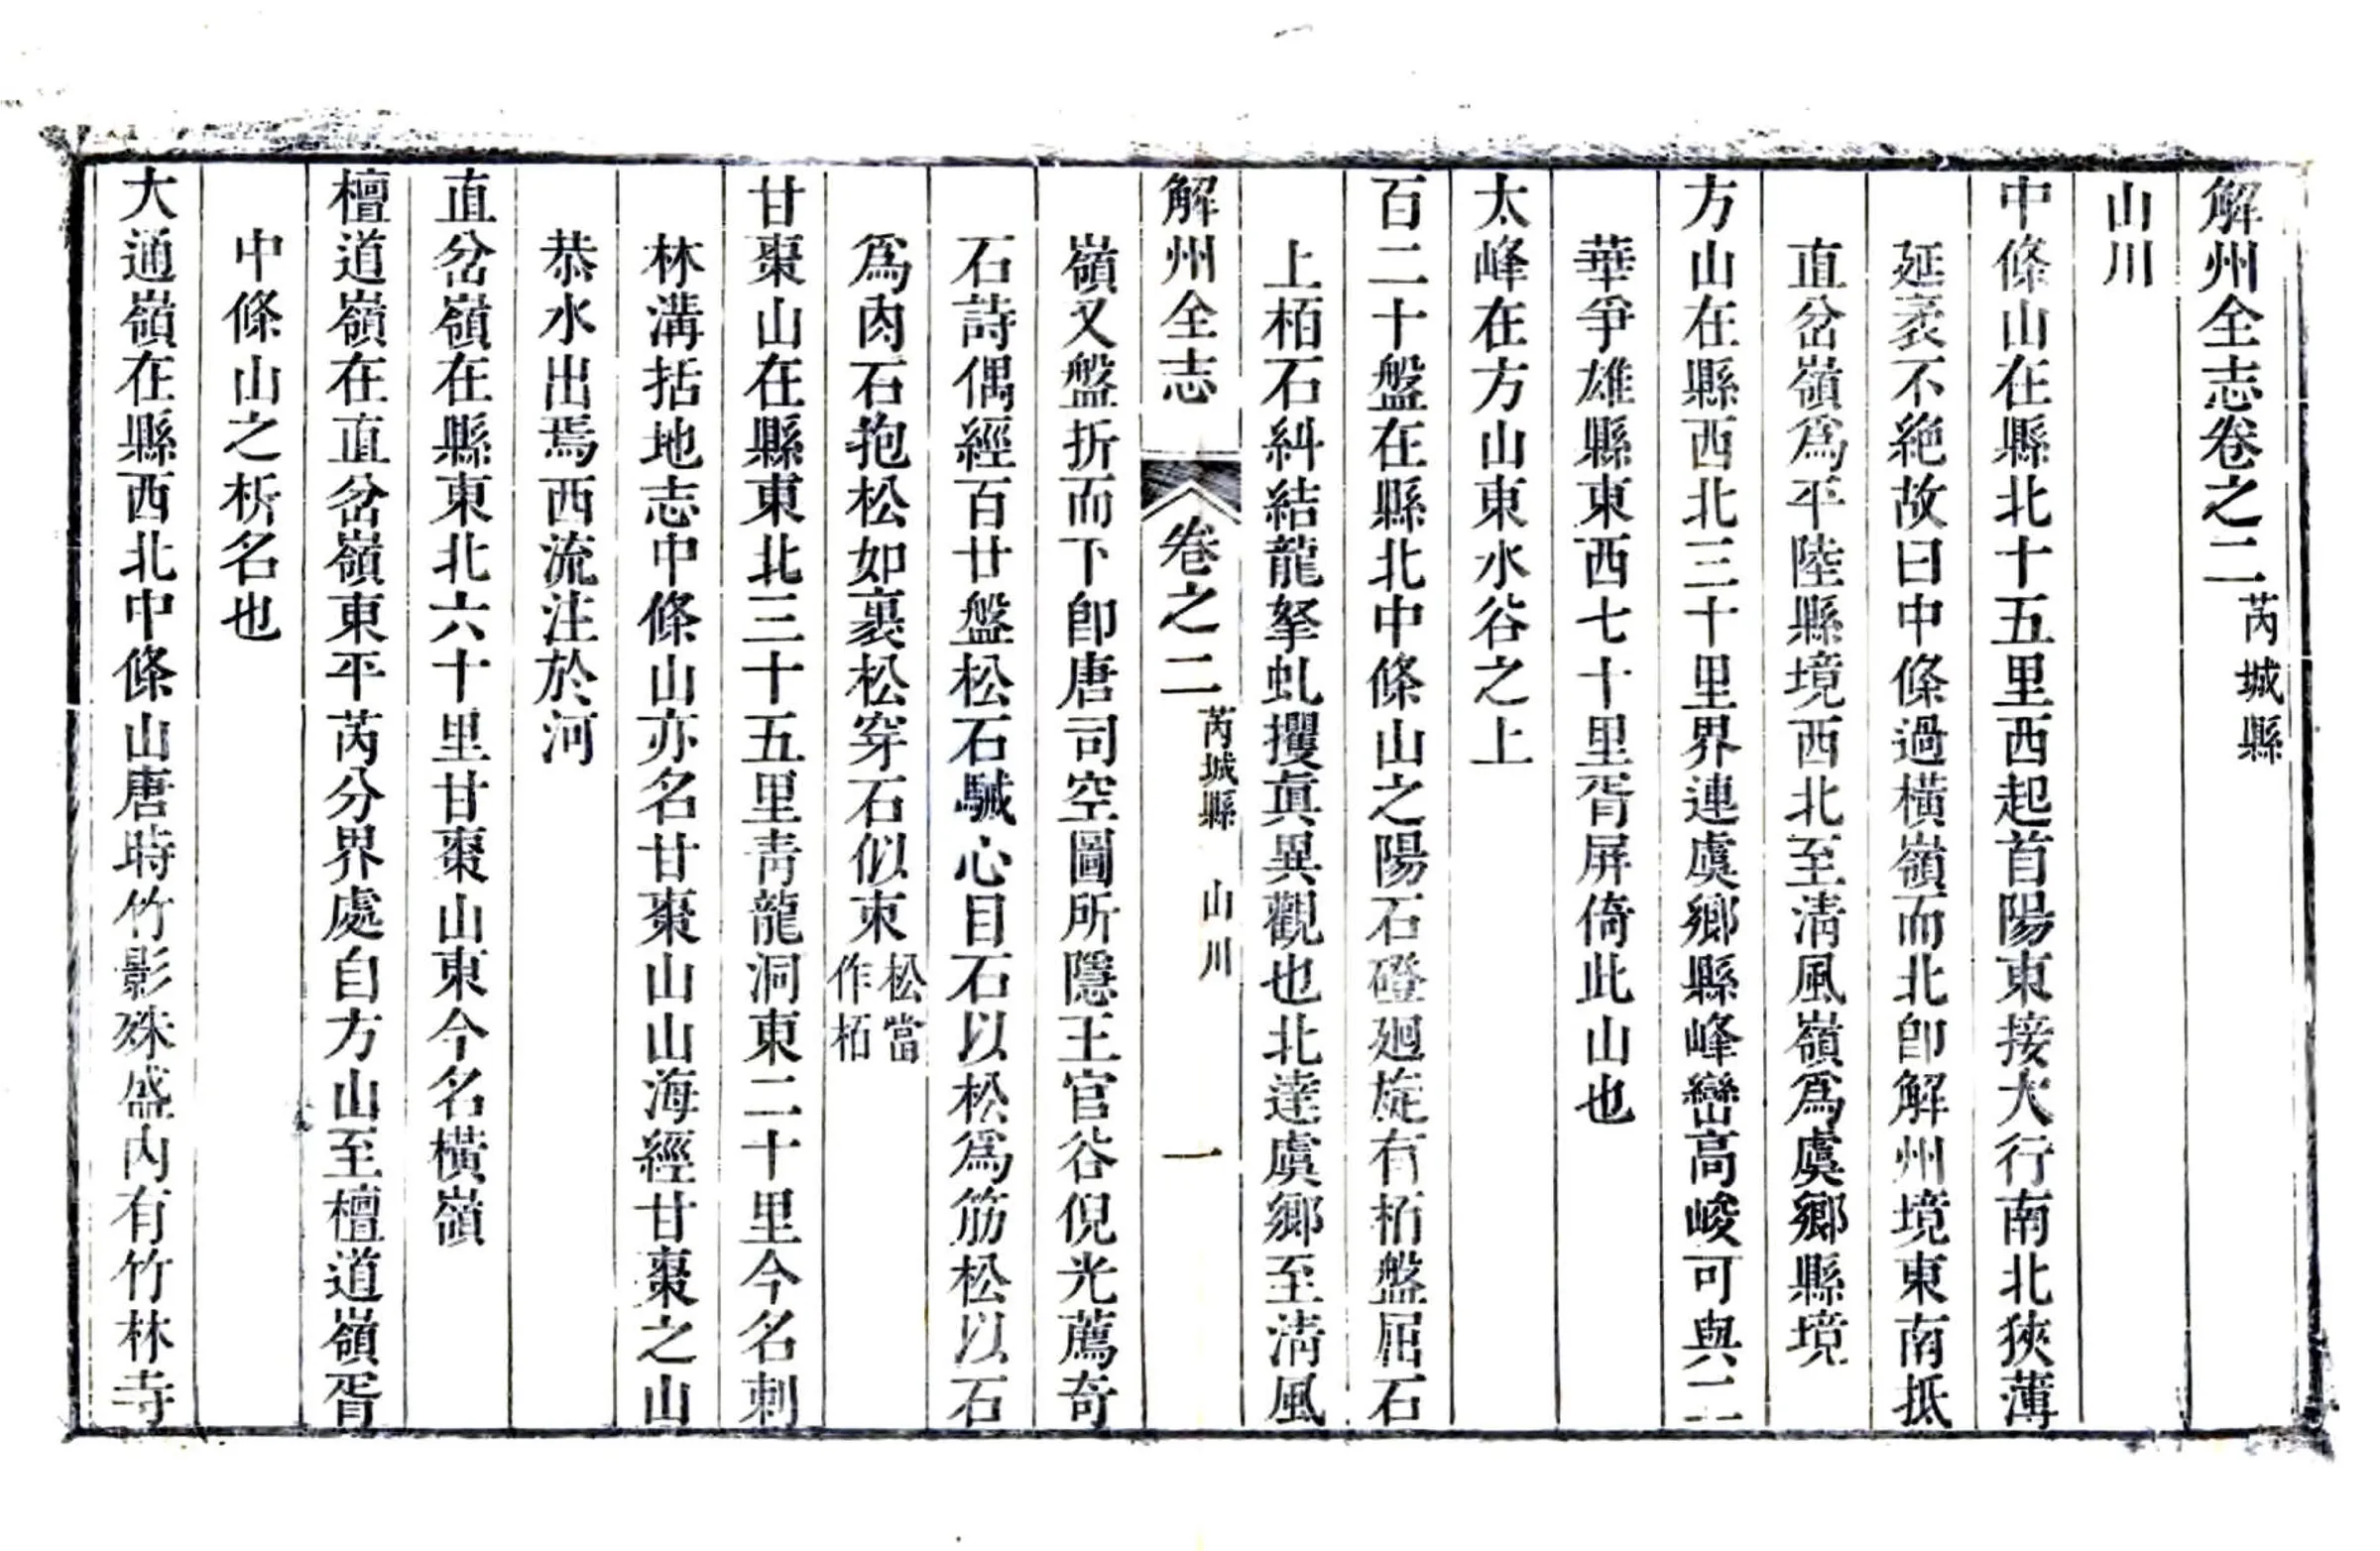 解州全志卷之二芮城縣
山川
中條山在縣北十五里西起首陽東接大行南北狹薄
延袤不絶故曰中條過橫嶺而北卽解州境東南抵
直岔嶺爲平陸縣境西北至清風嶺爲虞鄉縣境
方山在縣西北三十里界連虞鄉縣峰巒高峻可與二
華爭雄縣東西七十里胥屏倚此山也
太峰在方山東水谷之上
百二十盤在縣北中條山之陽石磴廻旋有栢盤屈石
上栢石糾結龍拏虬攫眞異觀也北逹虞鄉至清風
解州全志 卷之二芮城縣 山川 一
嶺又盤折而下卽唐司空圖所隱王官谷倪光薦奇
石詩偶經百廿盤松石駴心目石以松爲筋松以石
爲肉石抱松如裹松穿石似束松當作栢
甘棗山在縣東北三十五里青龍洞東二十里今名刺
林溝括地志中條山亦名甘棗山山海經甘棗之山
恭水出焉西流注於河
直岔嶺在縣東北六十里甘棗山東今名橫嶺
檀道嶺在直岔嶺東平芮分界處自方山至檀道嶺胥
中條山之析名也
大通嶺在縣西北中條山唐時竹影殊盛内有竹林寺